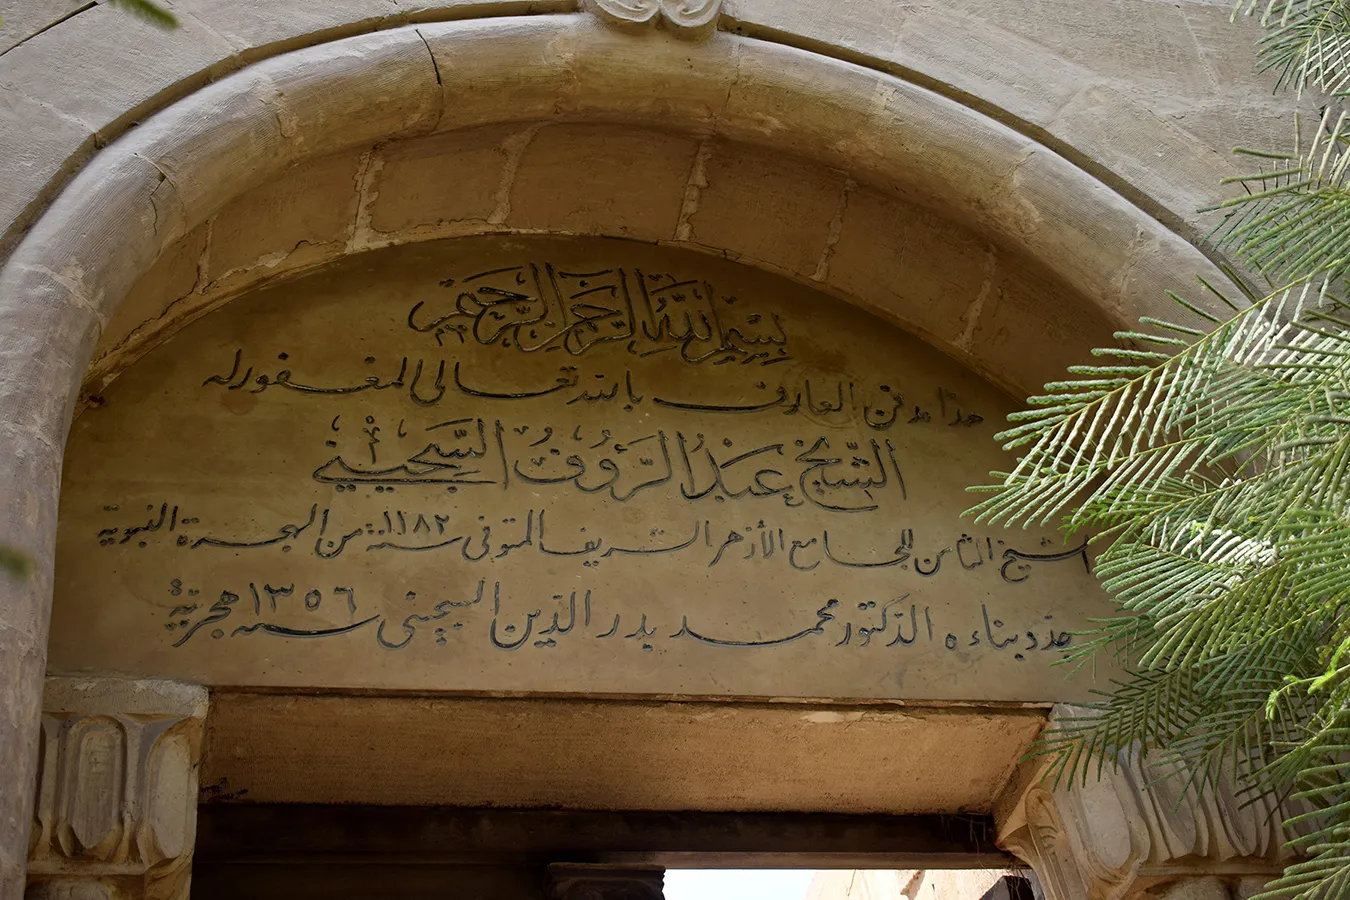 بسم الله الرحمن الرحيم
هذا مدفن العارف بالله تعالى المغفور له
الشيخ عبد الرؤوف السجيني
الشيخ الثامن للجامع الأزهر الشريف المتوفى سنة ١١٨٢ من الهجرة النبوية
جدد بناءه الدكتور محمد بدر الدين السجيني سنة ١٣٥٦ هجرية